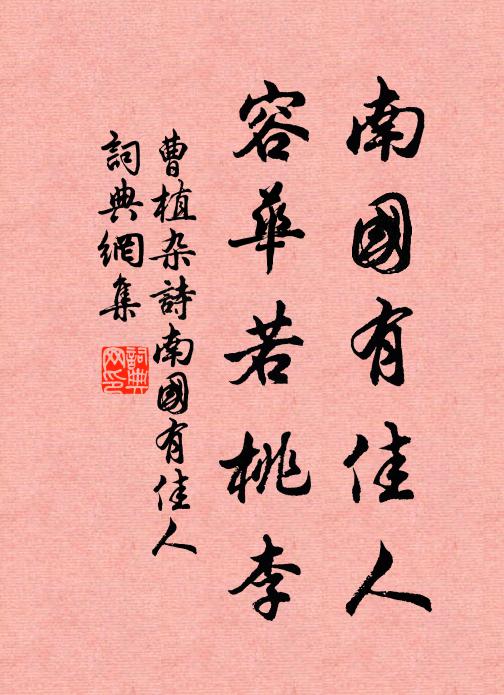 南國有佳人
容華若桃李
曹植杂詩南國有佳人
詞典網集
詞典網印